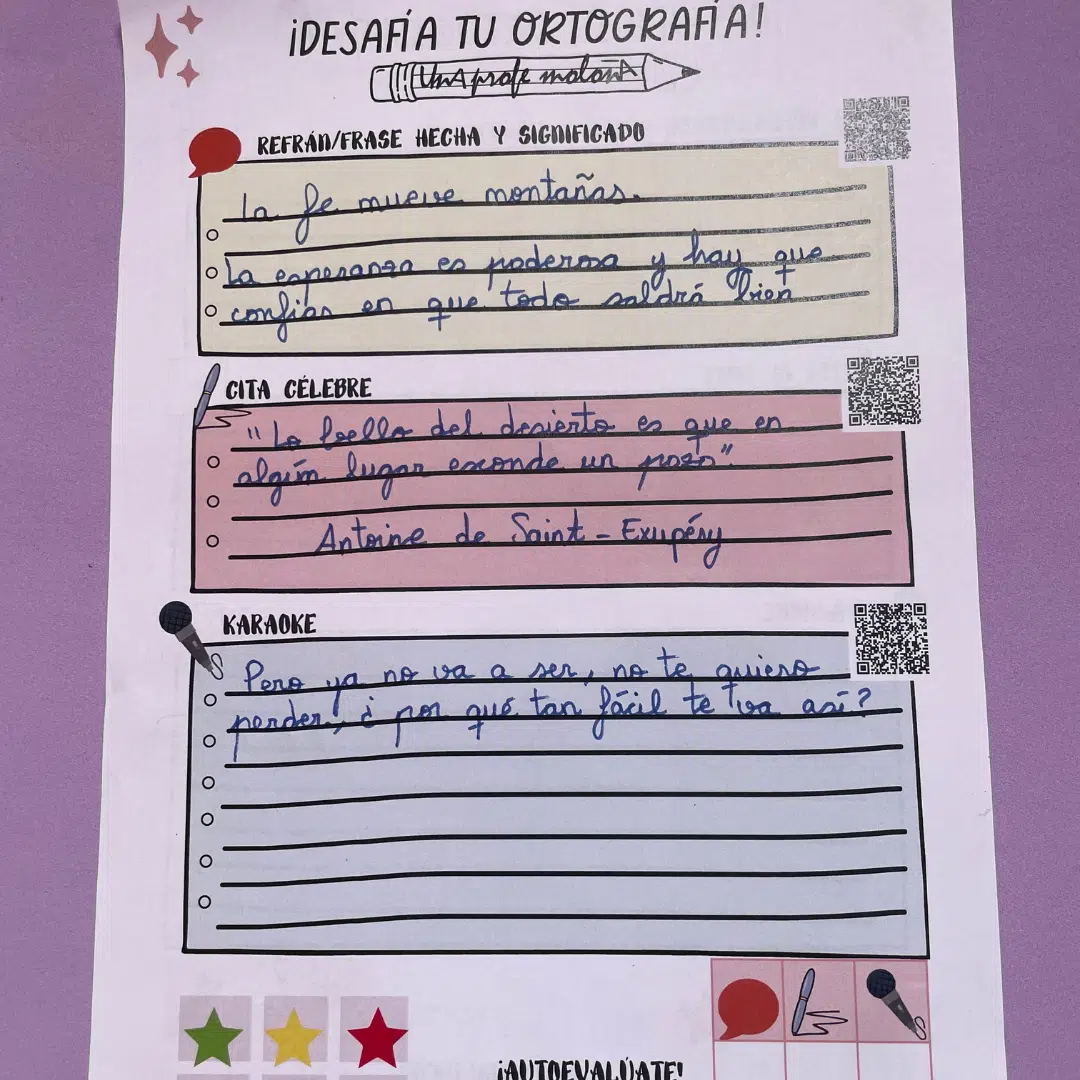 ¡DESAFÍA TU ORTOGRAFÍA!
UnA profe molonA
REFRÁN/FRASE HECHA Y SIGNIFICADO
La fe mueve montañas.
La esperanza es poderosa y hay que
confiar en que todo saldrá bien
CITA CÉLEBRE
"Lo bello del desierto es que en
algún lugar esconde un pozo".
Antoine de Saint-Exupéry
KARAOKE
Pero ya no va a ser, no te quiero
perder, ¿por qué tan fácil te va así?
¡AUTOEVALÚATE!